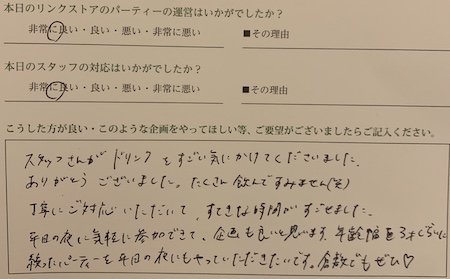 本日のリンクストアのパーティーの運営はいかがでしたか？
非常に良い・良い・悪い・非常に悪い　■その理由
本日のスタッフの対応はいかがでしたか？
非常に良い・良い・悪い・非常に悪い　■その理由
こうした方が良い・このような企画をやってほしい等、ご要望がございましたらご記入ください。
スタッフさんがドリンクをすごい気にかけてくださいました。
ありがとうございました。たくさん飲んですみません(笑)
丁寧にご対応いただいて、すてきな時間がすごせました。
平日の夜に気軽に参加できて、企画も良いと思います。年齢幅を3才くらいに
絞ったパーティーを平日の夜にもやっていただきたいです。倉敷でもぜひ♡